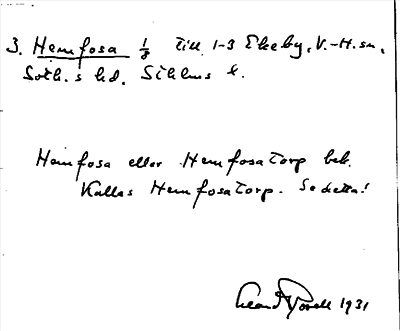 3. Hemfosa 1/8 till 1-3 Ekeby, V.-H. sn,
Soth.s hd. Sthlms l.
Hemfosa eller Hemfosatorp beb.
Kallas Hemfosatorp. Se detta!
1931